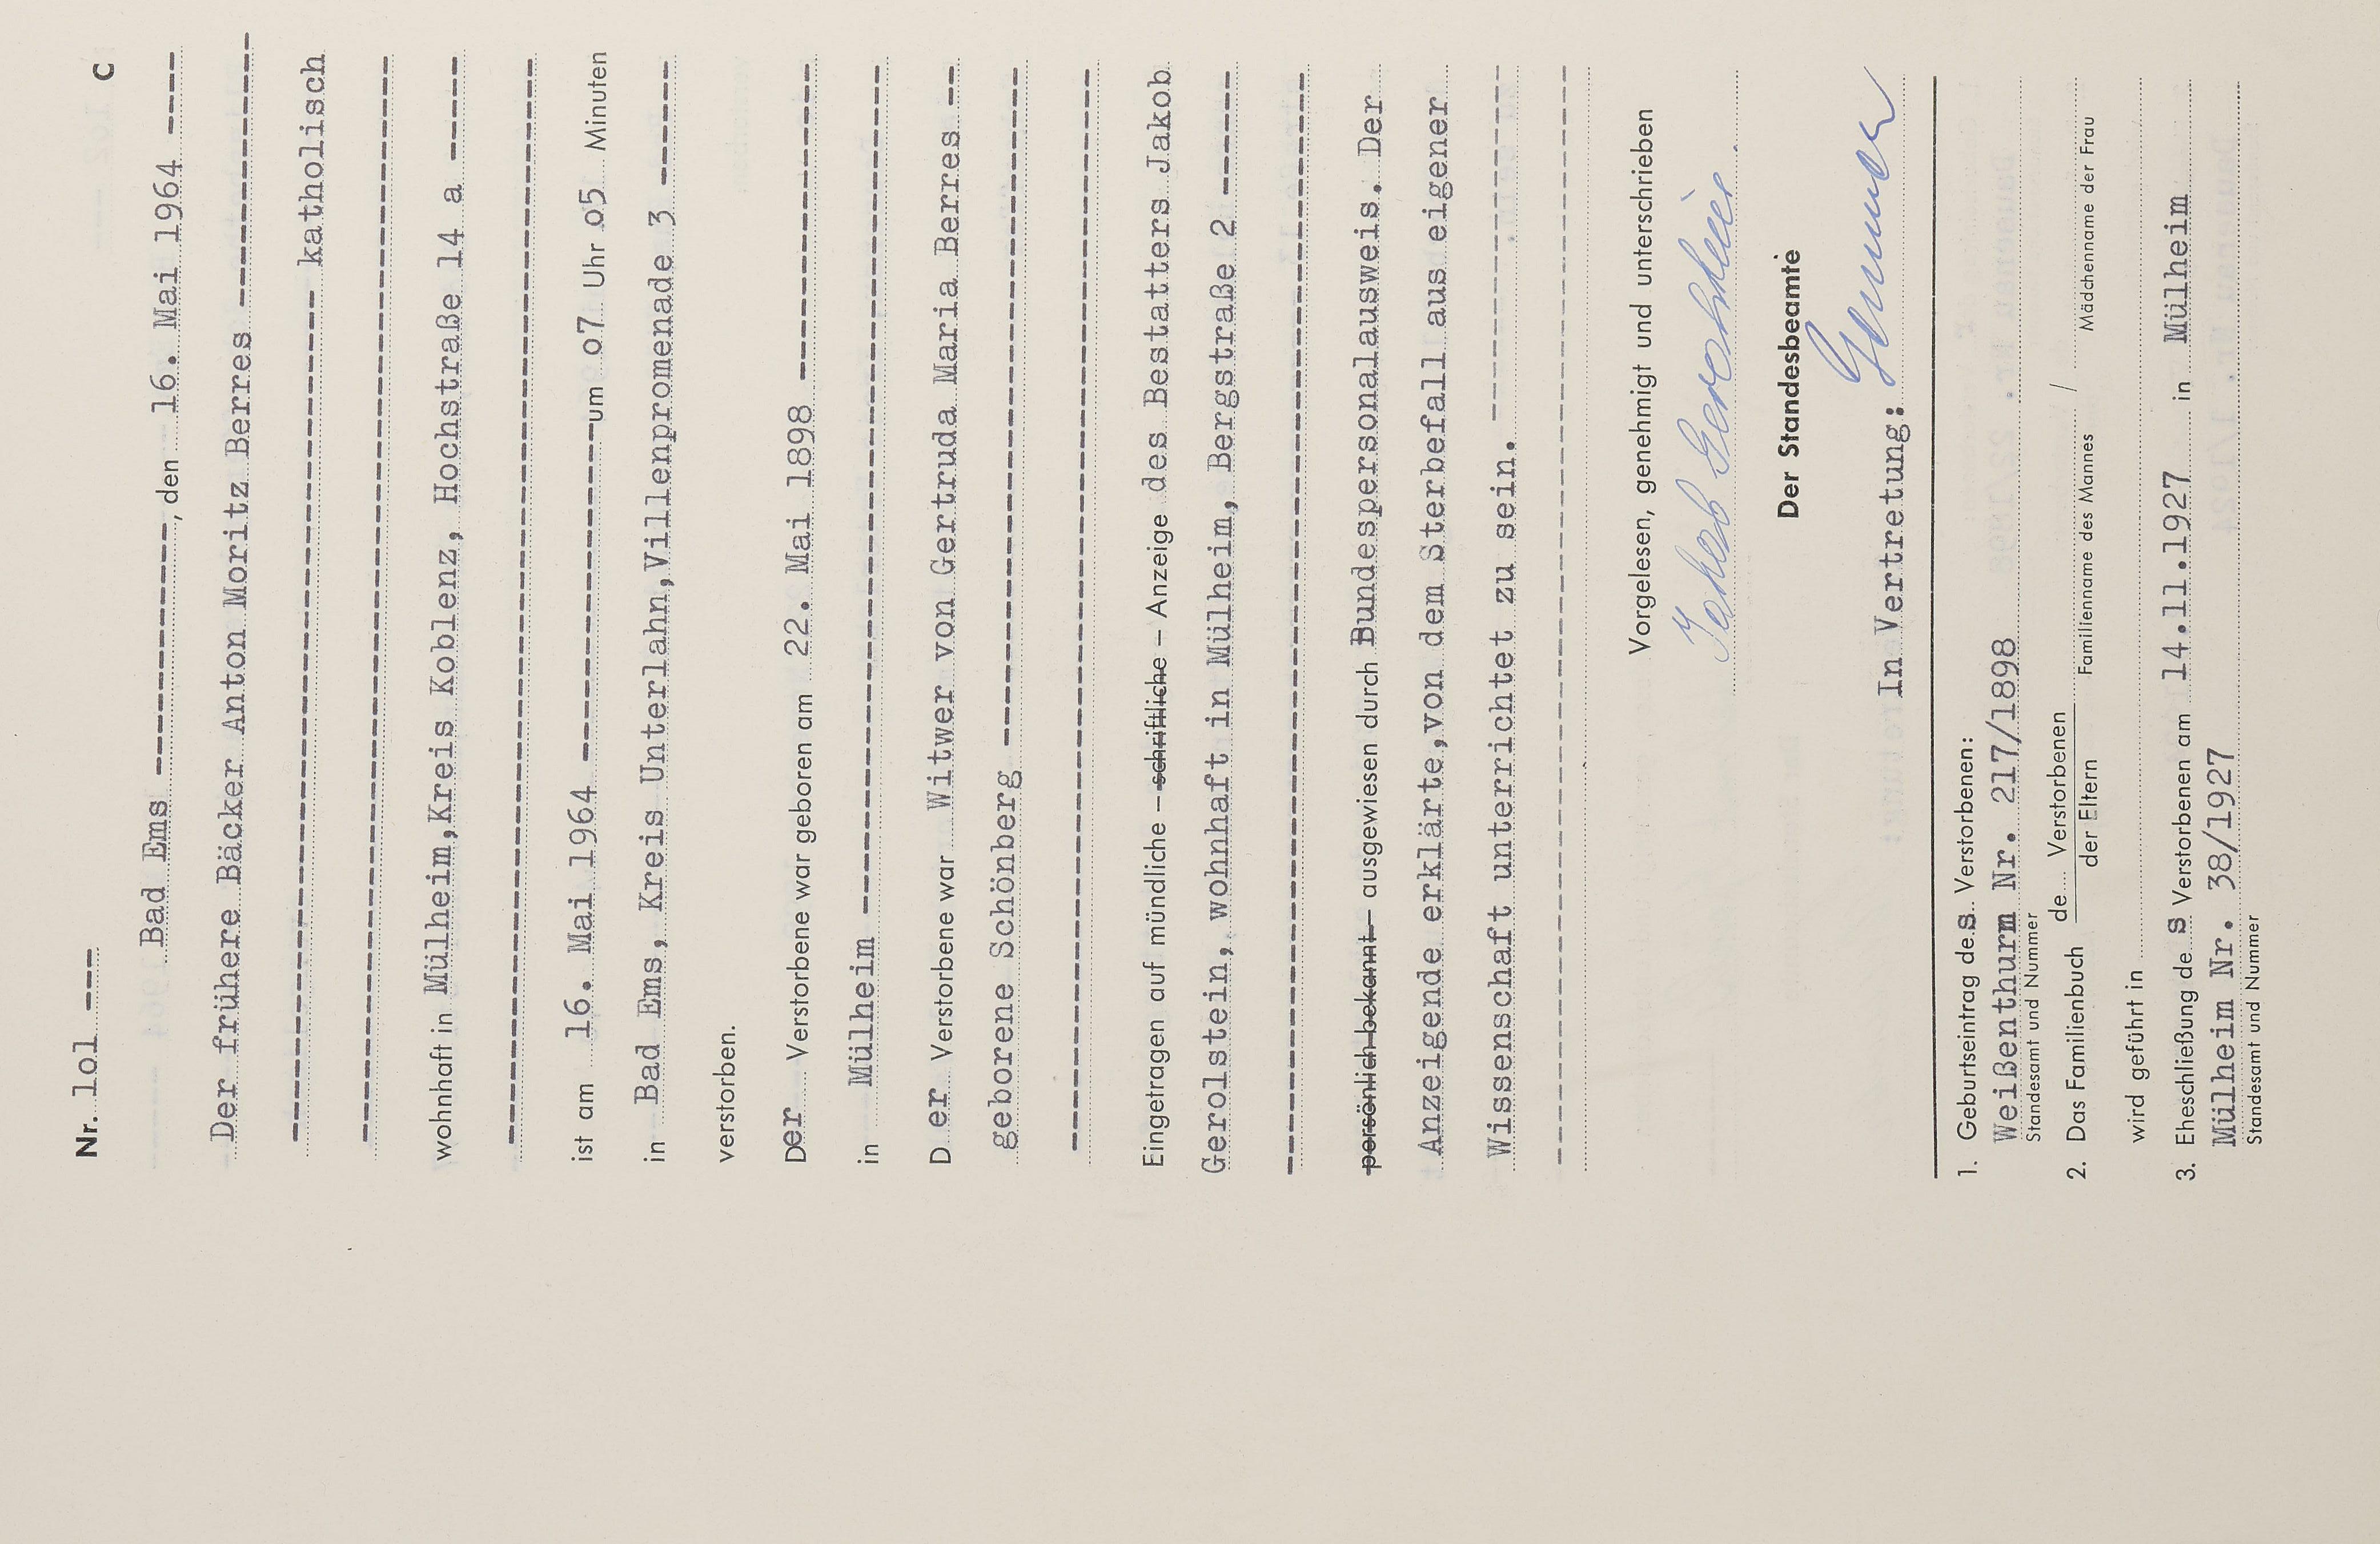 Nr. lol --- C
Bad Ems ----------------, den 16. Mai 1964 ----
Der frühere Bäcker Anton Moritz Berres ----------------
---------------------------------------- katholisch
----------------------------------------
wohnhaft in Mülheim,Kreis Koblenz, Hochstraße 14 a -----
----------------------------------------
ist am 16. Mai 1964 ----------------um o7 Uhr o5 Minuten
in Bad Ems, Kreis Unterlahn,Villenpromenade 3 ------
verstorben.
Der Verstorbene war geboren am 22. Mai 1898 ----------------
in Mülheim ----------------------------------------
D er Verstorbene war Witwer von Gertruda Maria Berres ---
geborene Schönberg ----------------------------------------
----------------------------------------
Eingetragen auf mündliche – schriftliche – Anzeige des Bestatters Jakob
Gerolstein, wohnhaft in Mülheim, Bergstraße 2 ------
----------------------------------------
persönlich bekannt – ausgewiesen durch Bundespersonalausweis. Der
Anzeigende erklärte,von dem Sterbefall aus eigener
Wissenschaft unterrichtet zu sein. ----------------
----------------------------------------
Vorgelesen, genehmigt und unterschrieben
Jakob Gerolstein
Der Standesbeamte
In Vertretung:
1. Geburtseintrag des Verstorbenen:
Weißenthurm Nr. 217/1898
Standesamt und Nummer
2. Das Familienbuch de Verstorbenen der Eltern /
Familienname des Mannes Mädchenname der Frau
wird geführt in
3. Eheschließung de s Verstorbenen am 14.11.1927 in Mülheim
Mülheim Nr. 38/1927
Standesamt und Nummer